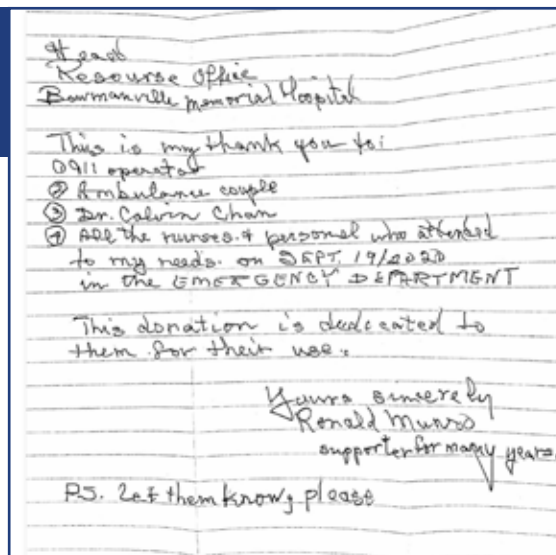 Head
Resourse Office
Bowmanville Memorial Hospital
This is my thank you to:
① 911 operator
② Ambulance couple
③ Dr. Calvin Chan
④ All the nurses & personal who attended
to my needs on SEPT. 19/2020
in the EMERGENCY DEPARTMENT
This donation is dedecated to
them for their use.
Yours sincerely
Ronald Munro
supporter for many years
P.S. Let them know, please